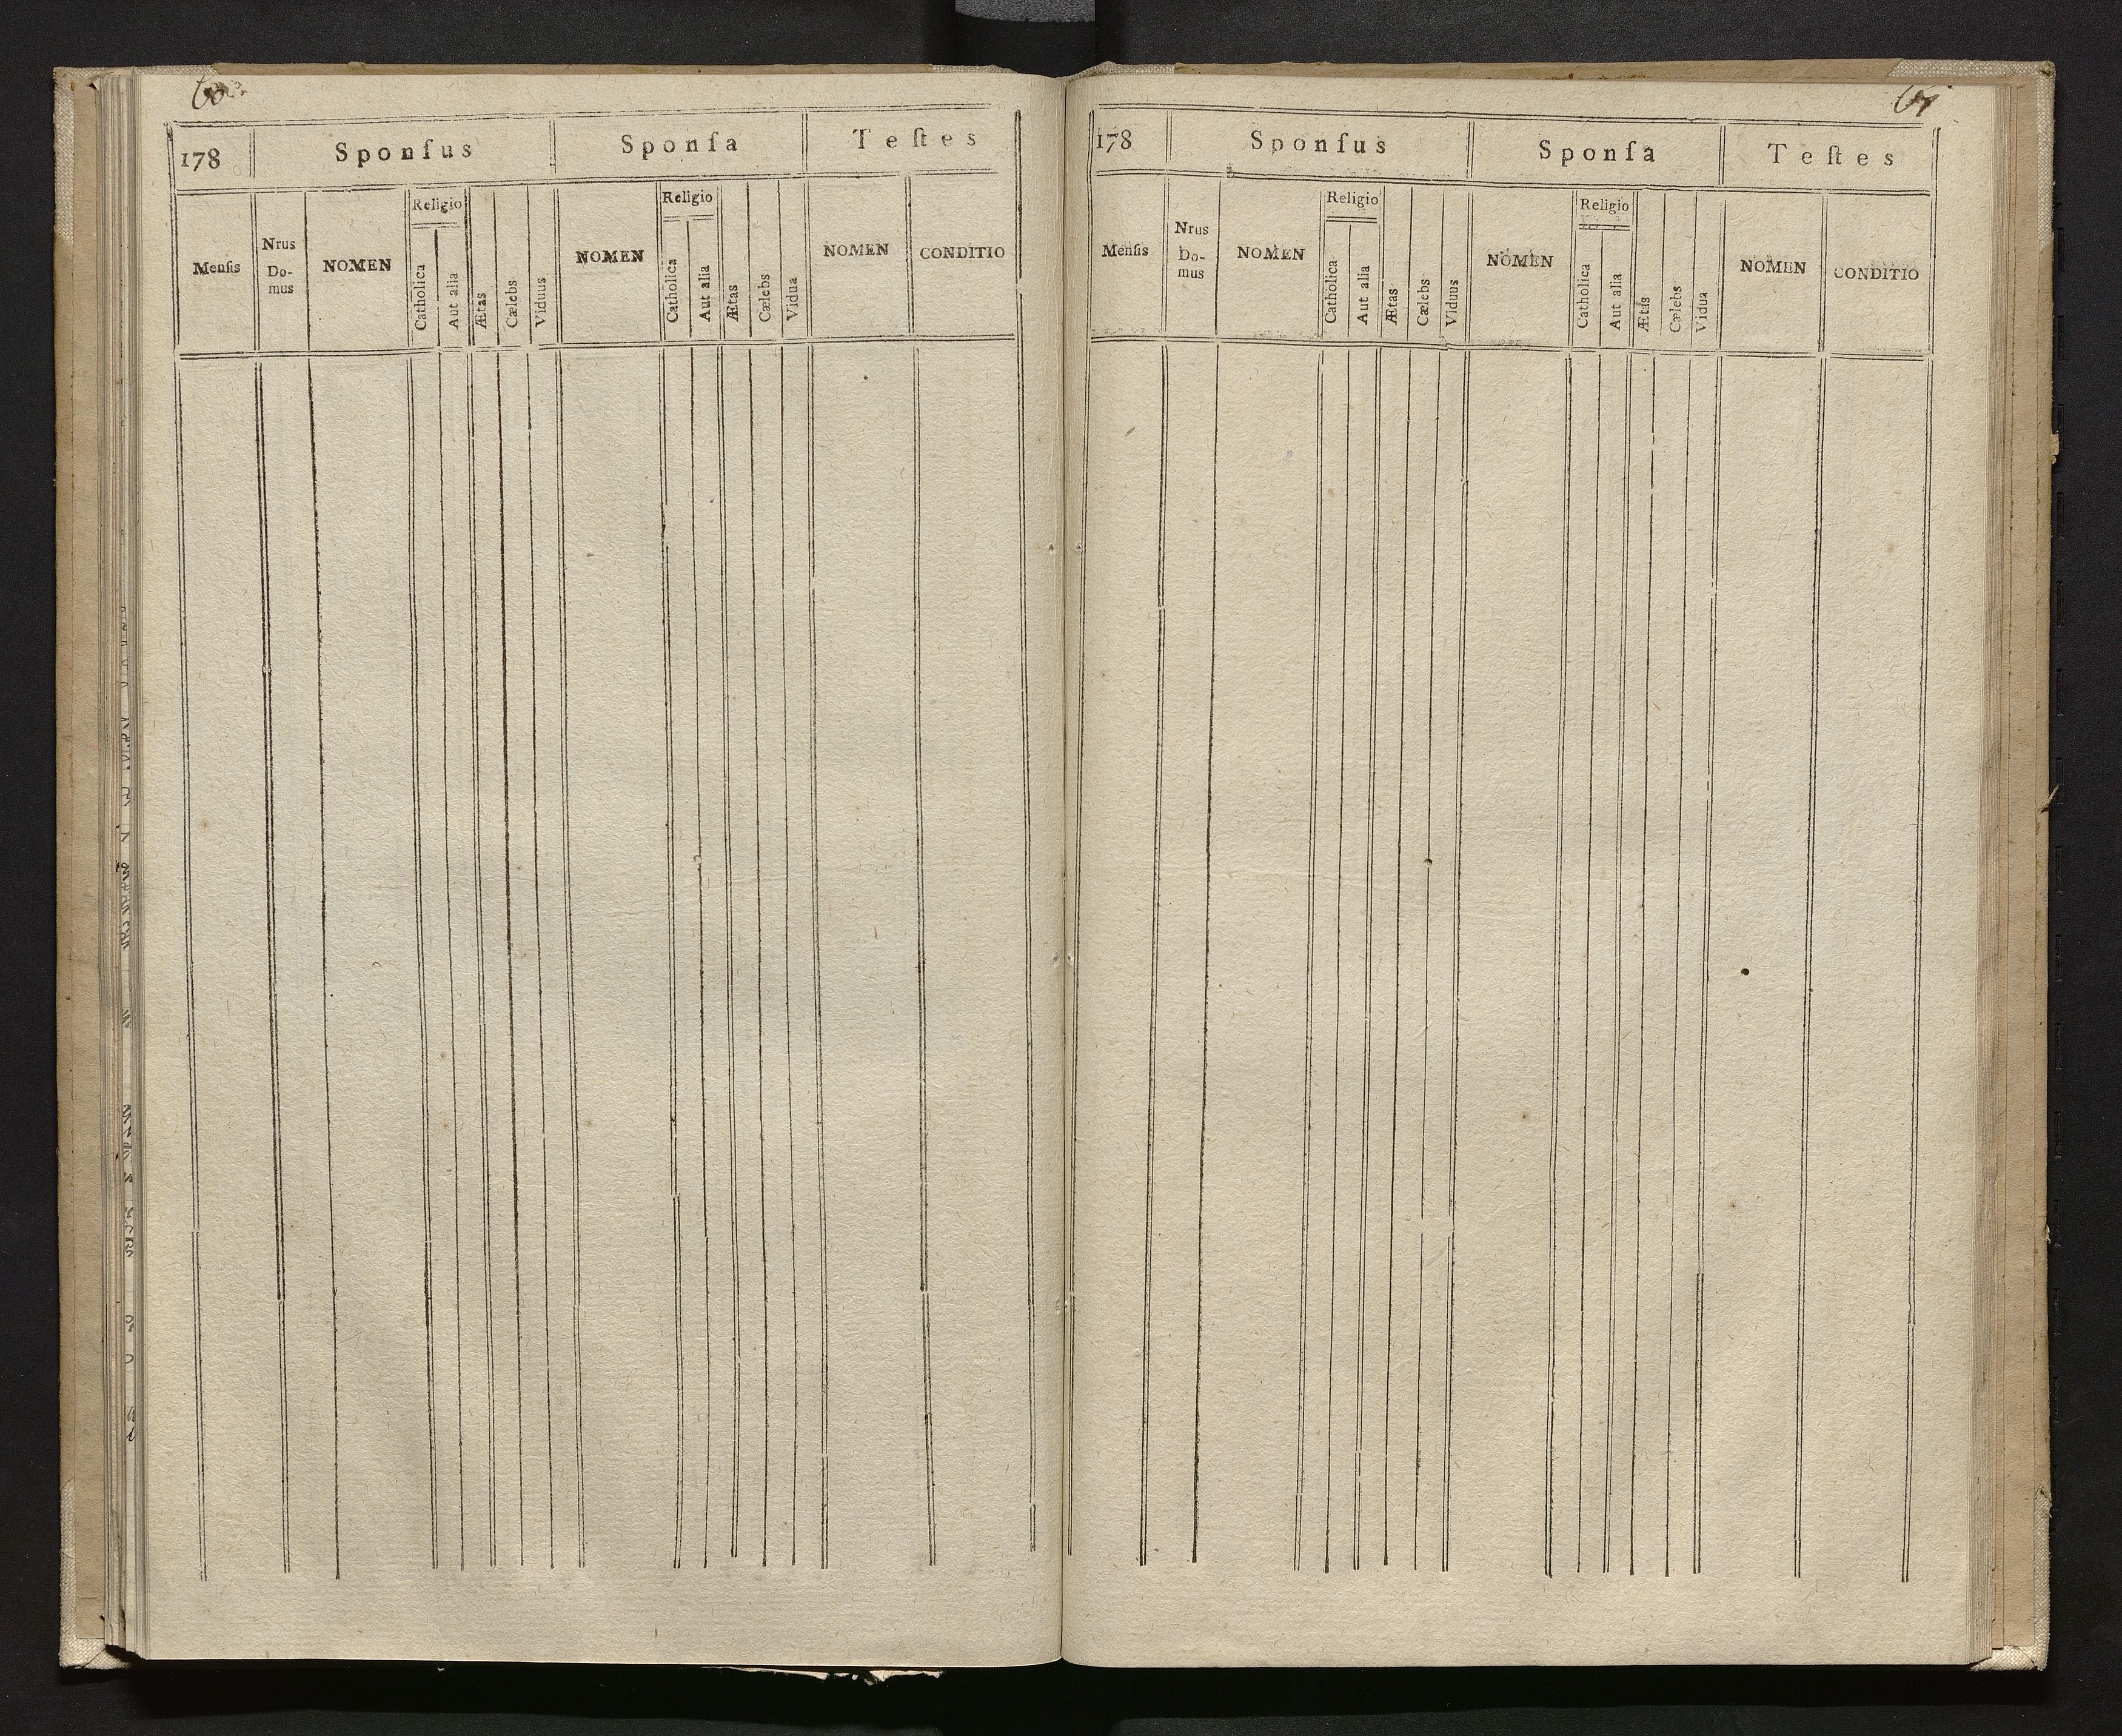 60
178 Sponſus Sponſa Teſtes
Menſis Nrus Do-mus NOMEN Religio Catholica Aut alia Ætas Cælebs Viduus NOMEN Religio Catholica Aut alia Ætas Cælebs Vidua NOMEN CONDITIO
61
178 Sponſus Sponſa Teſtes
Menſis Nrus Do-mus NOMEN Religio Catholica Aut alia Ætas Cælebs Viduus NOMEN Religio Catholica Aut alia Ætas Cælebs Vidua NOMEN CONDITIO